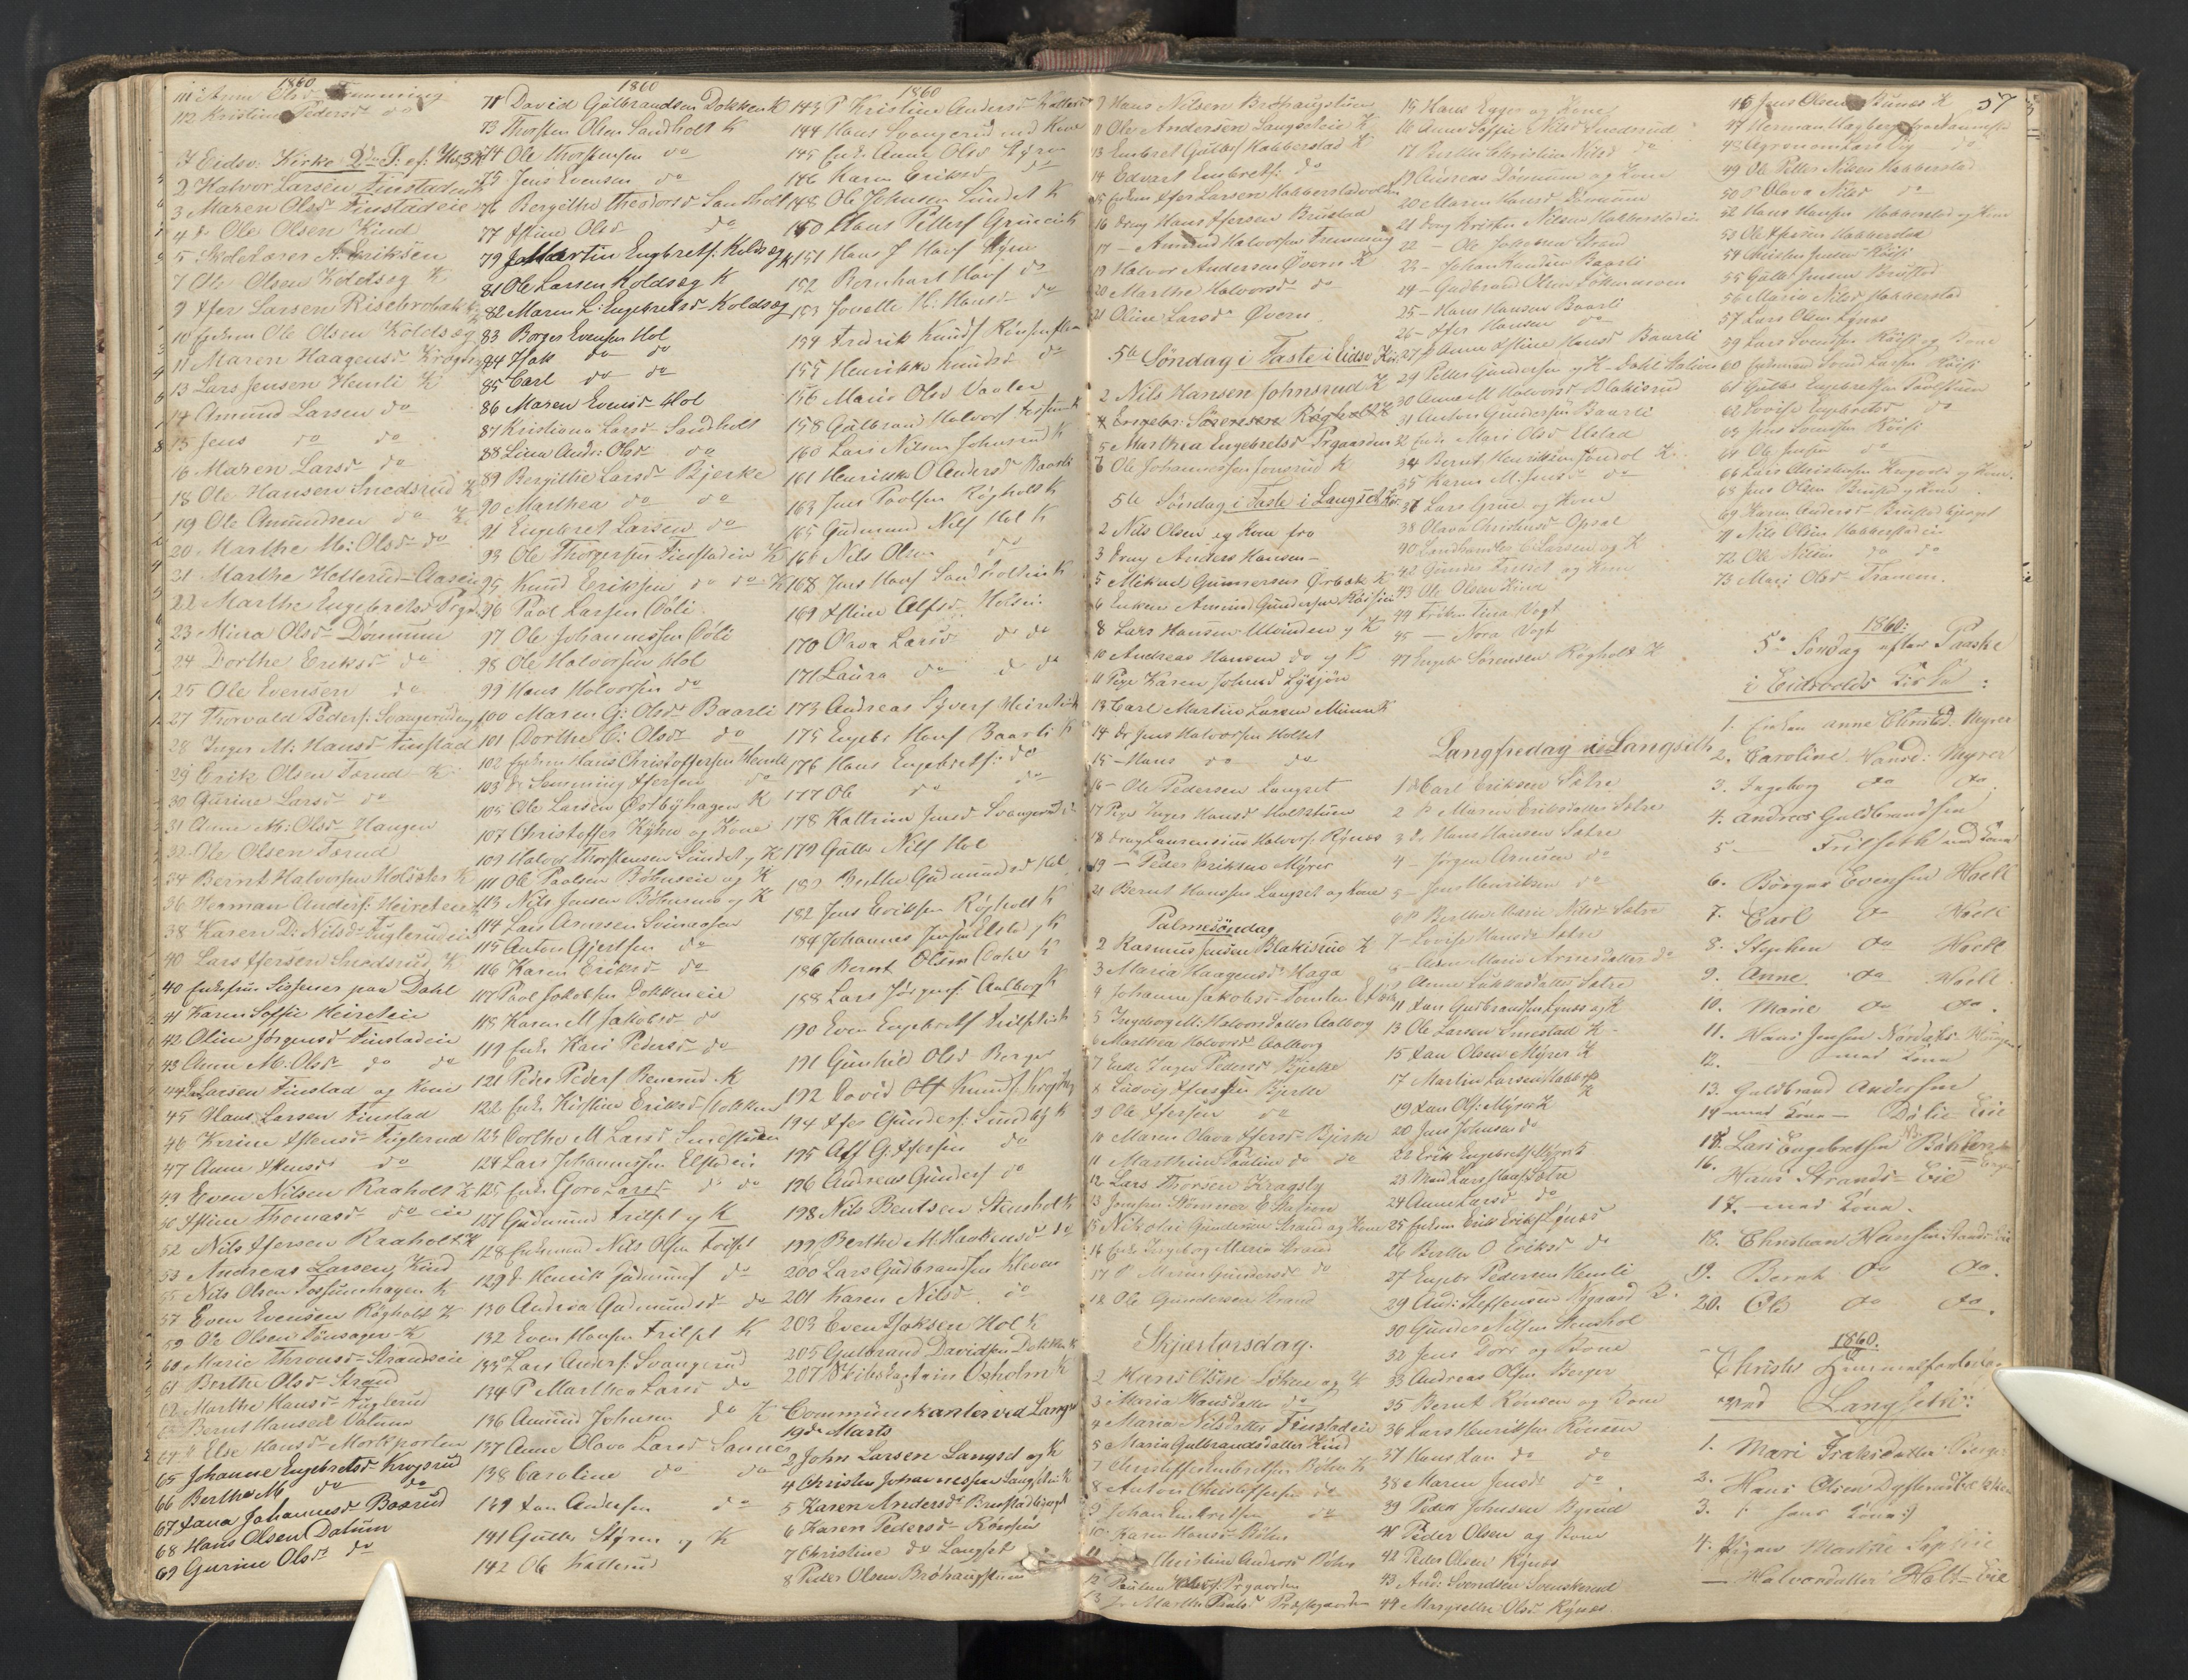 1860
111 Anne Olsd Tramning
112 Kristine Pedersd do
I Eidsv: Kirke 2den S: ef: H 3 K
2 Halvor Larsen Finstadeie K
3 Maren Olsd Finstadeie
4 Ole Olsen Kind
5 Skolelærer A. Eriksen
7 Ole Olsen Koldseg K
9 Ifer Larsen Risebrobak K
10 Enkem Ole Olsen Koldseg
11 Maren Haagensd Kragsby
13 Lars Jensen Hemli K
14 Amund Larsen do
15 Jens do do
16 Maren Larsd do
18 Ole Hansen Snedsrud K
19 Ole Amundsen do K
20 Marthe M: Olsd do
21 Marthe Hellerud-Aaseie
22 Marthe Engebretsd Prgd
23 Miera Olsd Dønnum
24 Dorthe Eriksd do
25 Ole Evensen do
27 Thorvald Peders: Svangerud og K
28 Inger M: Hansd Finstad
29 Erik Olsen Tærud K
30 Gurine Larsd do
31 Anne M: Olsd Haugen
32 Ole Olsen Tærud
34 Bernt Halvorsen Holsæter K
36 Herman Anders: Heireteie
38 Karen D: Nilsd Fuglerudeie
40 Lars Ifersen Snedsrud K
40 Enkefru Sissener paa Dahl
41 Karen Soffie Heireteie
42 Oline Jørgensd Finstadeie
43 Anne M. Olsd do do
44 Lars Larsen Finstad og Kone
45 Hans Larsen Finstad
46 Karine Iffensd Fuglerud
47 Anne Iffensd do
49 Even Nilsen Raaholt K
50 Iffine Thomasd do eie
52 Nils Ifersen Raaholt K
53 Andreas Larsen Kind
55 Nils Olsen Tossumhagen K
57 Even Evensen Røgholt K
59 Ole Olsen Tønsager K
60 Marie Thronsd Strandeie
61 Berthe Olsd Strand
62 Marthe Hansd Fuglerud
63 Bernt Hansen Datum
64 Else Hansd Morkporten
65 Johanne Engebretsd Krogsrud
66 Berthe M do do
67 Lana Johannesd Baarud
68 Hans Olsen Datum
69 Gurine Olsd do
1860
71 David Gulbrandsen Dokken K
73 Thorsten Olsen Sandholt K
74 Ole Thorstensen do
75 Jens Evensen do
76 Bergithe Theodorsd Sandholt
77 Iffine Olsd do
79 Martin Engbrets: Koldseg K
81 Ole Larsen Koldseg K
82 Maren L: Engebretsd Koldseg
83 Borger Evensen Hol
84 Isak do do
85 Carl do do
86 Maren Evensd Hol
87 Kristiana Larsd Sandholt
88 Lina Andr: Olsd do
89 Bergithe Larsd Bjerke
90 Marthea do do
91 Engebret Larsen do
93 Ole Thorgersen Finstadeie K
95 Knud Eriksen do do K
96 Paul Larsen Bøli
97 Ole Johannessen Bøli
98 Ole Halvorsen Hol
99 Hans Halvorsen do
100 Maren G: Olsd Baarli
101 Dorthe O: Olsd do
102 Enkem Hans Christoffersen Hemli
103 do Semming Ifersen do
105 Ole Larsen Østbyhagen K
107 Christoffer Kyhn og Kone
109 Halvor Thorstensen Sundet og K
111 Ole Paulsen Bøhnseie og K
113 Nils Jensen Bøhnseie og K
114 Lars Arnesen Svinaasen
115 Anton Gjertsen do
116 Karen Eriksd do
117 Paul Jakobsen Dokkeneie
118 Karen M Jakobsd do
119 Enke Kari Pedersd do
121 Peder Peders Benerud K
122 Enke Kirstine Eriksd Dokken
123 Dorthe M Larsd Smedstuen
124 Lars Johannesen Elstadeie
125 Enke Goro Larsd do do
127 Gudmund Trilset og K
128 Enkemand Nils Olsen Trilset
129 do Henrik Gudmunds do
130 Andrea Gudmundsd do
132 Even Hansen Trilset K
133 Lars Anders: Svangerud
134 P Marthea Larsd do
136 Amund Johnsen do K
137 Anne Olava Larsd Sanner
138 Caroline do do
139 Lan Andersen do
141 Gulle Styren og K
142 Ole Kallerud
1860
143 P Kristine Andersd Kallerud
144 Hans Svangerud med Kone
145 Enk. Anne Olsd Styren
146 Karen Eriksd do
148 Ole Johnsen Sundet K
150 Hans Petters Grueeie K
151 Hans J Hans Styren
152 Bernhart Hans do
153 Jonette H: Hansd do
154 Fredrik Knuds
155 Henrikke Knudsd do
156 Marie Olsd Vaalen
158 Gulbrand Halvors K
160 Lars Nilsen Johnsrud K
161 Henrikke O Andersd Baarli
163 Jens Paulsen Røgholt K
165 Gudmund Nils Hol K
166 Nils Olsen do
168 Jens Hans Sandholteie K
169 Iffine Alfsd Holseie
170 Olava Larsd do do
171 Laura do do do
173 Andreas Syvers Heireteie K
175 Engebr Hans Baarli K
176 Hans Engebrets: do
177 Ole do do
178 Kathrine Jensd Svangerud
179 Gulle Nils Hol
180 Berthe Gudmundsd Hol
182 Jens Eriksen Røgholt K
184 Johannes Jensen Elstad K
186 Bernt Olsen K
188 Lars Jørgens: Aalborg K
190 Even Engebrets Trilseteie K
191 Gunhild Olsd Berger
192 David Ols
194 Ifer Gunders: Sundby K
195 Alf G: Ifersen do
196 Andreas Gunders do
198 Nils Bentsen Stensholt K
199 Berthe M: Haakensd do
200 Lars Gudbrandsen Kleven
201 Karen Nilsd do
203 Even Isaksen Hol K
205 Gulbrand Davidsen Dokken K
207 Skibskaptain Oxholm K
Communikanter ved Langs
19de Marts
2 John Larsen Langset og K
4 Christen Johannessen Langseteie K
5 Karen Andersd Brustadbjerget
6 Karen Pedersd Rønsen
7 Christine do Langset
8 Peder Olsen Brøhaugstuen
9 Hans Nilsen Brøhaugstuen
11 Ole Andersen Langseteie K
13 Embret Gulbs Habberstad K
14 Edvart Embrets: do
15 Enkem Ifer Larsen Habberstadvolden
16 Drng Hans Ifersen Brustad
17 – Amund Halvorsen Tremning
19 Halvor Andersen Øvern K
20 Marthe Halvorsd do
21 Oline Larsd Øvern
5te Søndag i Faste i Eidsv Kir
2 Nils Hansen Johnsrud K
4 Engebr: Sørensen Røgholt K
5 Marthea Engebretsd Prgaarden
6 Ole Johannessen Jonsrud K
5te Søndag i Faste i Langset Kir
2 Nils Olsen og Kone fra
3 Drng Anders Hansen –
5 Mikael Gunnersen Ørbak K
6 Enkem Amund Gundersen Røisin
8 Lars Hansen Ulvinden og K
10 Andreas Hansen do og K
11 Pige Karen Johnsd Lysjøn
13 Carl Martin Larsen Minne K
14 Dr Jens Halvorsen Holset
15 – Hans do do
16 – Ole Pedersen Langset
17 Pige Inger Hansd Holkstuen
18 Drng Laurensius Halvors: Rynes
19 – Peder Eriksen Myrer
21 Bernt Hanssen Langset og Kone
Palmesøndag
2 Rasmus Jensen Blakisrud K
3 Maria Haagensd Haga
4 Johanne Jakobsd Tomten
5 Ingeborg M: Halvorsdatter Aalborg
6 Marthea Halvorsd Aalborg
7 Enke Inger Pedersd Bjerke
8 Ludvig Ifersen Bjerke
9 Ole Ifersen do
10 Maren Olava Ifersd Bjerke
11 Marthine Pauline do do
12 Lars Thorsen Kragsby
13 Jomfru Stømner E. Station
15 Nikolai Gundersen Strand og Kone
16 Enke Ingeborg Maria Strand
17 P Maren Gundersd do
18 Ole Gundersen Strand
Skjertorsdag.
2 Hans Olsen Løken og K
3 Maria Hansdatter do
4 Maria Nilsdatter Finstadeie
5 Maria Gulbrandsdatter Kind
7 Christoffer Embretsen Bøhn K
8 Anton Christoffersen do
9 Johan Embretsen do
10 Karen Hansd Bøhn
11 Christine Andersd Bøhn
12 Paulina Prgaarden
13 Marthe Paulsd Præstegaarden
15 Hans Egger og Kone
16 Anne Soffie Nilsd Snedsrud
17 Christine Nilsd do
19 Andreas Dønnum og Kone
20 Maren Larsd Dønnum
21 Drng Kristen Nilsen Habberstadeie
22 – Ole Johnsen Strand
23 – Johan Knudsen Baarli
24 – Gudbrand Olsen
25 – Hans Hansen Baarli
26 – Ifer Hansen do
27 P Anne Iffine Hansd Baarli
29 Petter Gundersen og K – Dahl Station
30 Anne M Halvorsd Blakisrud
31 Anton Gundersen Baarli
32 Enke Mari Olsd Elstad
34 Bernt Henriksen Sondol K
35 Karen M. Jensd do
37 Lars Grue og Kone
38 Olava Christensd Opsal
40 Landhandler C. Larsen og K
42 Gunder Trilset og Kone
43 Ole Olsen Kind
44 Frøken Tina Vogt
45 — Nora Vogt
47 Engebr Sørensen Røgholt K
Langfredag i Langseth
1 Carl Eriksen Sætre
2 P Maren Eriksdatter Sætre
3 Dr Hans Hansen Sætre
4 – Jørgen Arnesen do
5 – Jens Henriksen do
6 P Berthe Marie Nilsd Sætre
7 – Lovise Hansd Sætre
8 – Anne Marie Arnesdatter do
9 Anne Lukkasdatter Sætre
11 Lars Gudbrandsen Lynæs og K
13 Ole Larsen Smestad K
15 Lan Olsen Myrer K
17 Martin Larsen Habberst K
19 Lan Ols: Myrer K
20 Jens Johnsen do
22 Erik Engebrets Myrer K
23 Mand Lars Hans Sætre
24 Anne Larsd do
25 Enkem Erik Eriks Lynæs
26 Berthe O Eriksd do
27 Engebr Pedersen Hemli
29 And: Steffensen Nygaard K
30 Gunder Nilsen Stenshol
32 Jens Dorr og Kone
33 Andreas Olsen Berger
35 Bernt Rønsen og Kone
36 Lars Henriksen Rønsen
37 Hans Lan do do
38 Maren Jensd do
39 Peder Johnsen Byrud
41 Peder Olsen og Kone
42 Peder Olsen Rynes
43 And: Svendsen Svenskerud
44 Margrethe Olsd Rynæs
57
46 Jens Olsen Bunæs K
47 Herman Hagberg
48 Agronom Lars Vig do
49 Ole Petter Nilsen Habberstad
50 P Olava Nilsd do
52 Hans Hansen Habberstad og Kone
53 Ole Ifersen Habberstad
54 Christen Jensen Røise
55 Gulbr Jensen Brustad
56 Maria Nilsd Habberstad
57 Lars Olsen Lynæs
59 Lars Svendsen Røise og Kone
60 Enkemand Svend Larsen Røise
61 Gulbr Engebretsen
62 Lovise Engebretsd do
63 Jens Svendsen Røise
64 Ole Jensen do
66 Lars Christensen Krogvold og Kone
68 Jens Olsen Brustad og Kone
69 Karen Andersd Brustadbjerget
71 Nils Olsen Habberstadeie
72 Ole Nilsen do do
73 Mari Olsd Tranem.
1860:
5te Søndag efter Paaske
i Eidsvolds Kirke:
1. Enken Anne Christd: Myrer
2. Caroline Hansd: Myrer
3. Ingeborg do do
4. Andreas Guldbrandsen
5 – Trilseth med Kone
6. Børger Evensen Hoell
7. Carl do Hoell
8. Stephen do Hoell
9. Anne do Hoell
10. Marie do do.
11. Hans Jensen Nordseths Haugen
12. med Kone
13. Guldbrand Andersen
14 – med Kone – Bølie Eie
15. Lars Engebrethsen Bøhlen
16. Hans Strands-Eie
17. – med Kone.
18. Christian Hansen Strands Eie
19. Bernt do do.
20. Ole do do.
1860.
Christi Himmelfartsdag
ved Langseth:
1. Mari Isaksdatter Berger
2. Hans Olsen
3. (: hans Kone:)
4. Pigen Marthe Sophie
— Halvorsdatter Holt-Eie